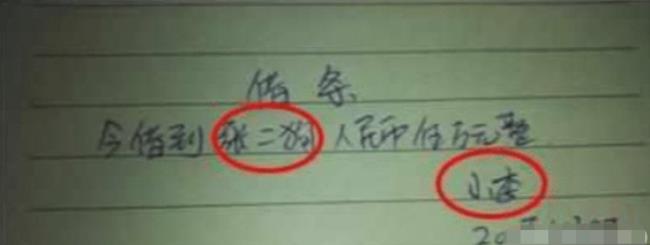 借条
今借到张二狗人民币伍万元整
小李